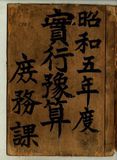 昭和五年度
實行豫算
庶務課